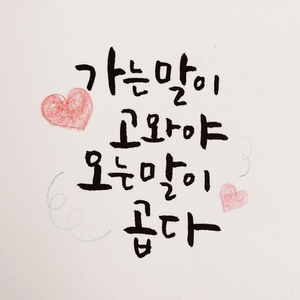 가는말이
고와야
오는말이
곱다